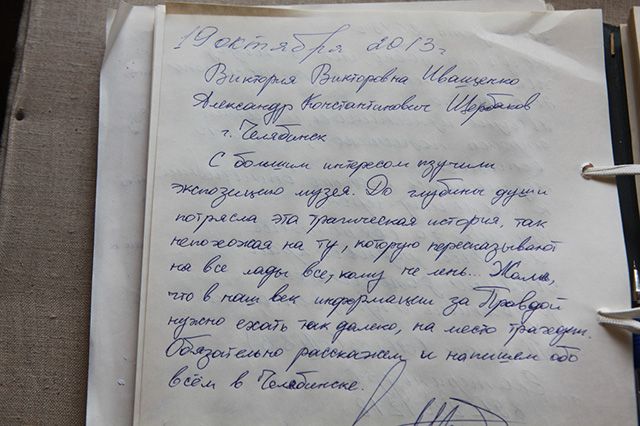 19 октября 2013г.
Виктория Викторовна Иващенко
Александр Константинович Щербаков
г. Челябинск
С большим интересом изучили
экспозицию музея. До глубины души
потрясла эта трагическая история, так
непохожая на ту, которую пересказывают
на все лады все, кому не лень... Жаль,
что в наш век информации за Правдой
нужно ехать так далеко, на место трагедии.
Обязательно расскажем и напишем обо
всём в Челябинске.